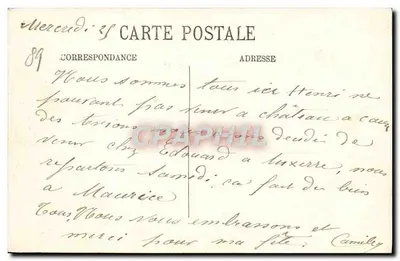 Mercredi 25 CARTE POSTALE
89 CORRESPONDANCE ADRESSE
Nous sommes tous ici Henri ne
pouvant pas venir a château a cause
des avons décidé de
venir chez Edouard a Auxerre, nous
repartons samedi, ca fait du bien
a Maurice
Tous, Nous vous embrassons et
merci pour ma fête. Camille
CPAPHIL